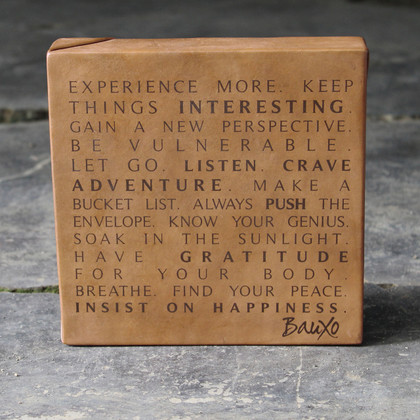 EXPERIENCE MORE. KEEP
THINGS INTERESTING.
GAIN A NEW PERSPECTIVE.
BE VULNERABLE.
LET GO. LISTEN. CRAVE
ADVENTURE. MAKE A
BUCKET LIST. ALWAYS PUSH THE
ENVELOPE. KNOW YOUR GENIUS.
SOAK IN THE SUNLIGHT.
HAVE GRATITUDE
FOR YOUR BODY.
BREATHE. FIND YOUR PEACE.
INSIST ON HAPPINESS.
BauXo